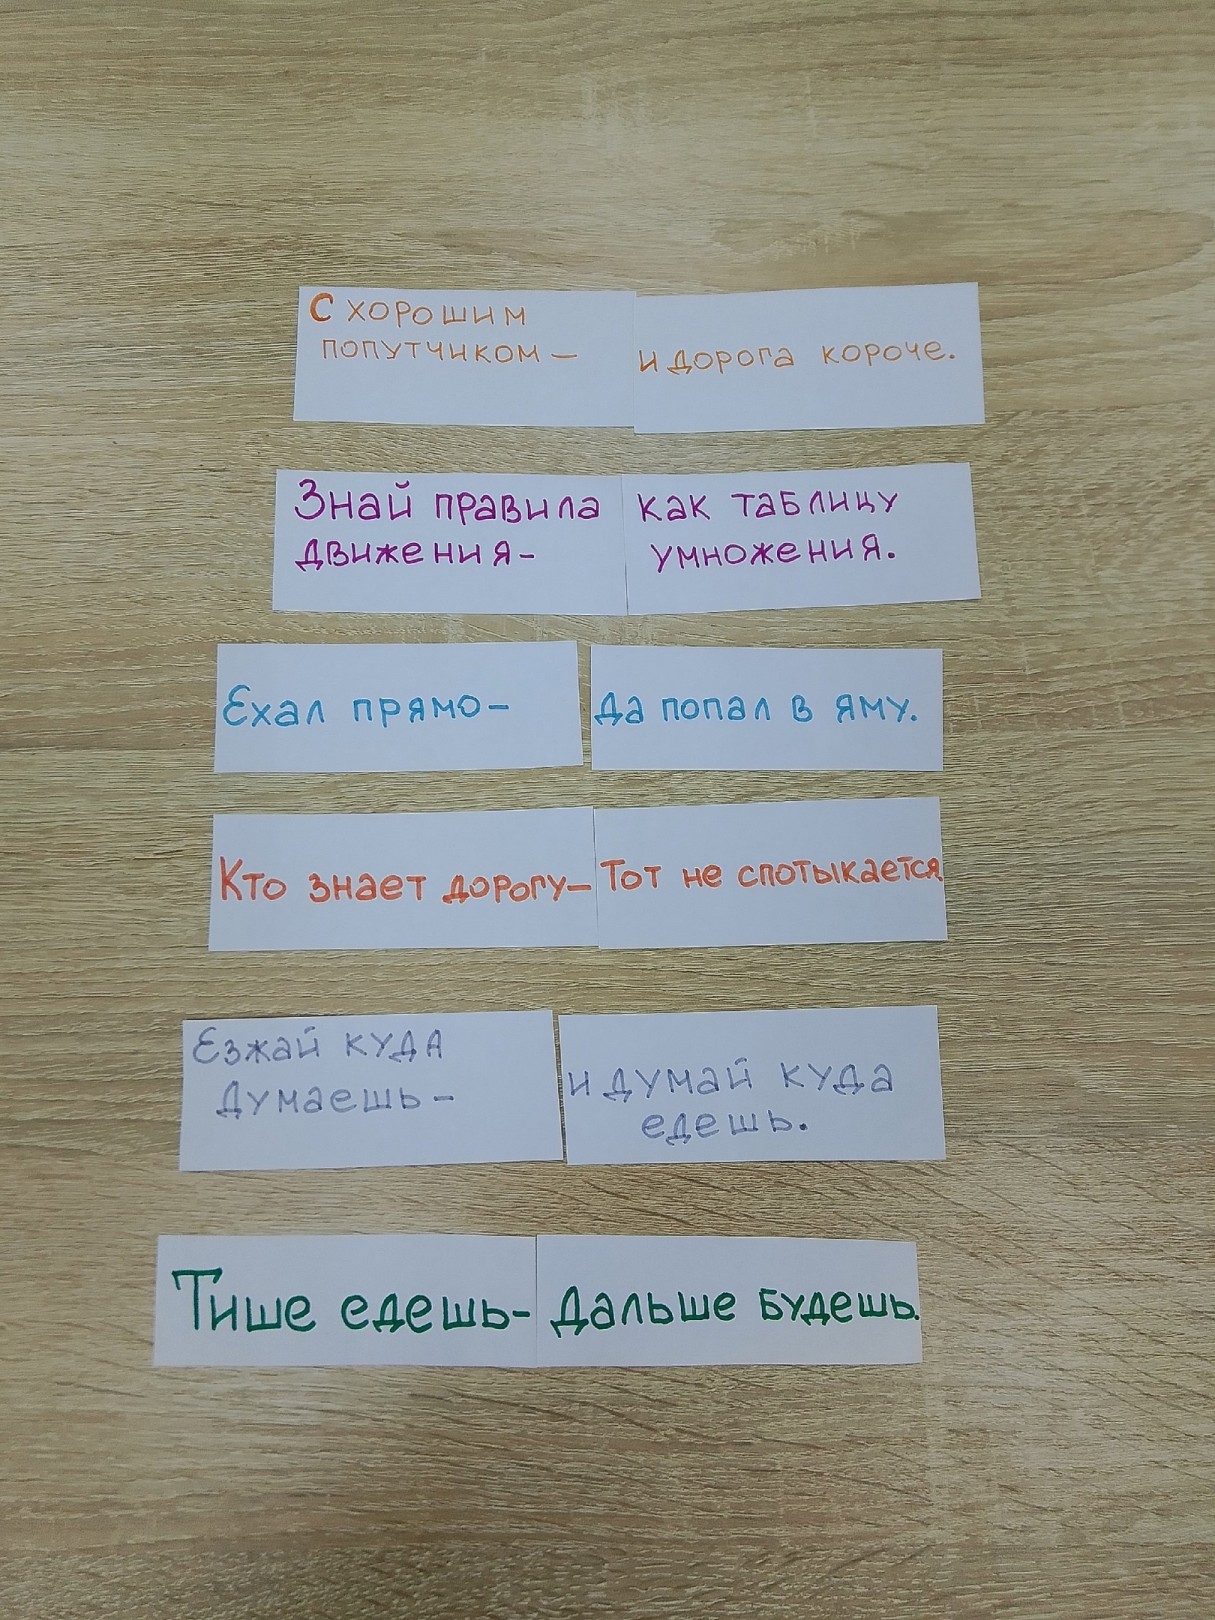 С хорошим
попутчиком –
и дорога короче.
Знай правила
движения-
как таблицу
умножения.
Ехал прямо-
да попал в яму.
Кто знает дорогу-
Тот не спотыкается
Езжай куда
думаешь-
и думай куда
едешь.
Тише едешь-
дальше будешь.